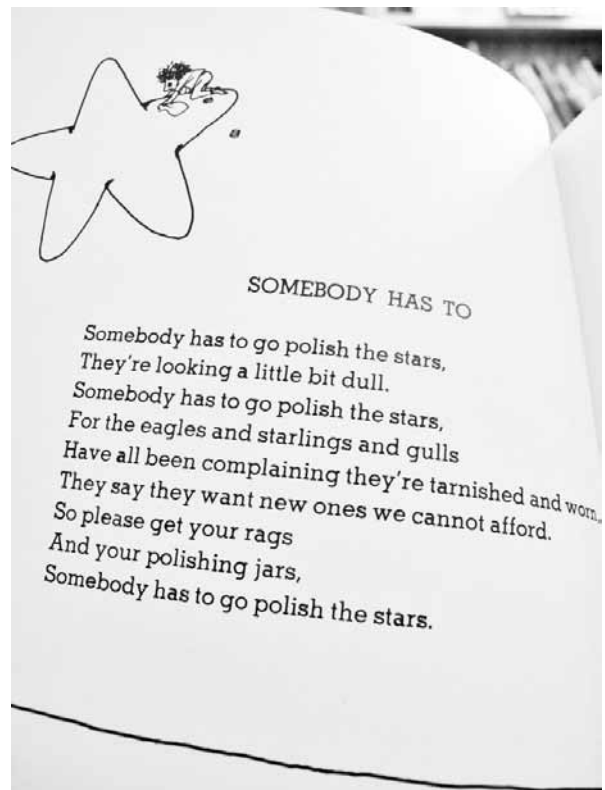 SOMEBODY HAS TO
Somebody has to go polish the stars,
They're looking a little bit dull.
Somebody has to go polish the stars,
For the eagles and starlings and gulls
Have all been complaining they're tarnished and worn,
They say they want new ones we cannot afford.
So please get your rags
And your polishing jars,
Somebody has to go polish the stars.